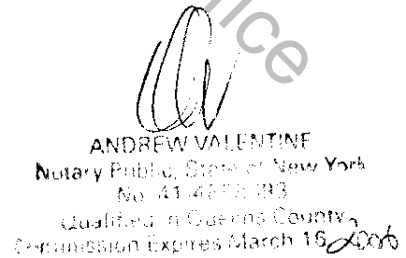 ice
ANDREW VALENTINE
Notary Public, State of New York
No. 41-
Qualified in Queens County
Commission Expires March 16 2006